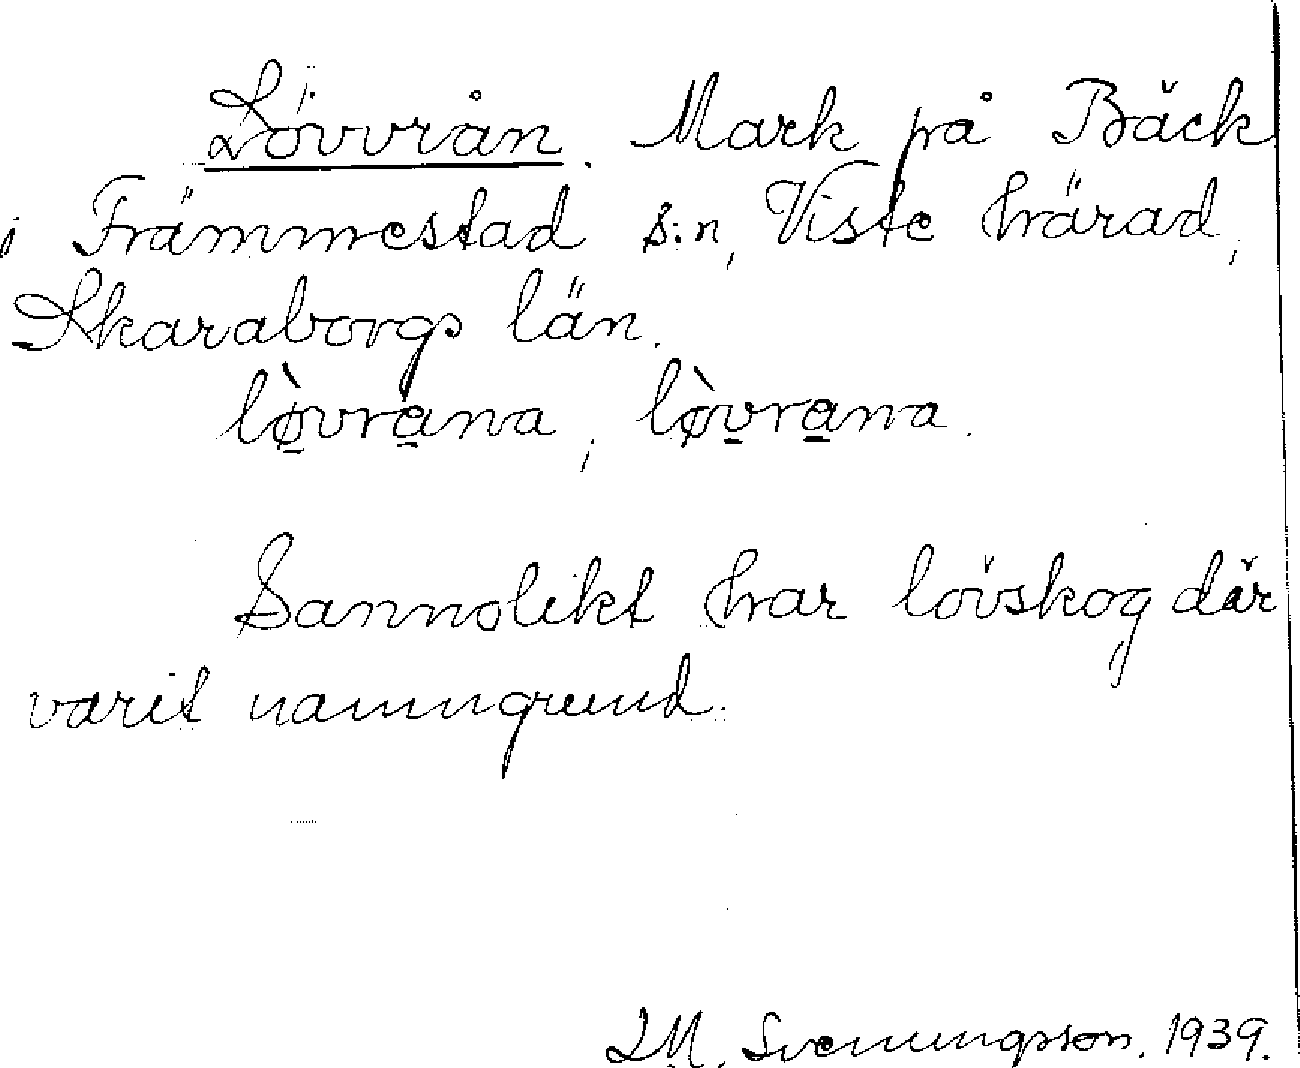 Lövvrån. Mark på Bäck
i Främmestad s:n, Viste härad,
Skaraborgs län.
lø̀vrana, lø̀vrana.
Sannolikt har lövskog där
varit namngrund.
I.M. Svenungsson. 1939.